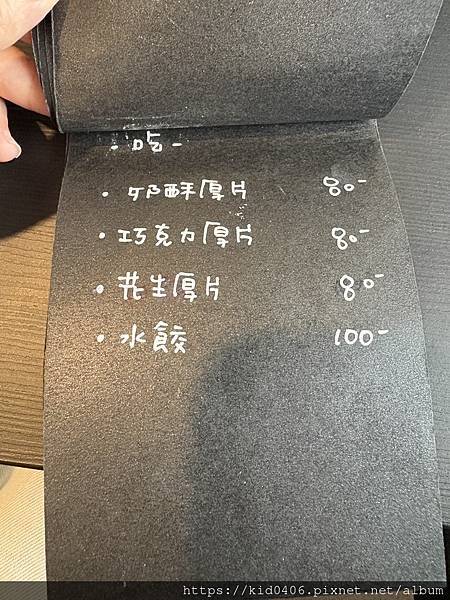 · 吃 -
· 奶酥厚片 80-
· 巧克力厚片 80-
· 花生厚片 80-
· 水餃 100-
https://kid0406.pixnet.net/album